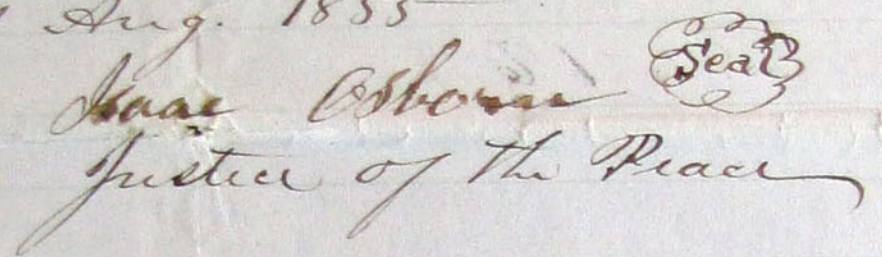 Aug. 1855
Isaac Osborne Seal
Justice of the Peace